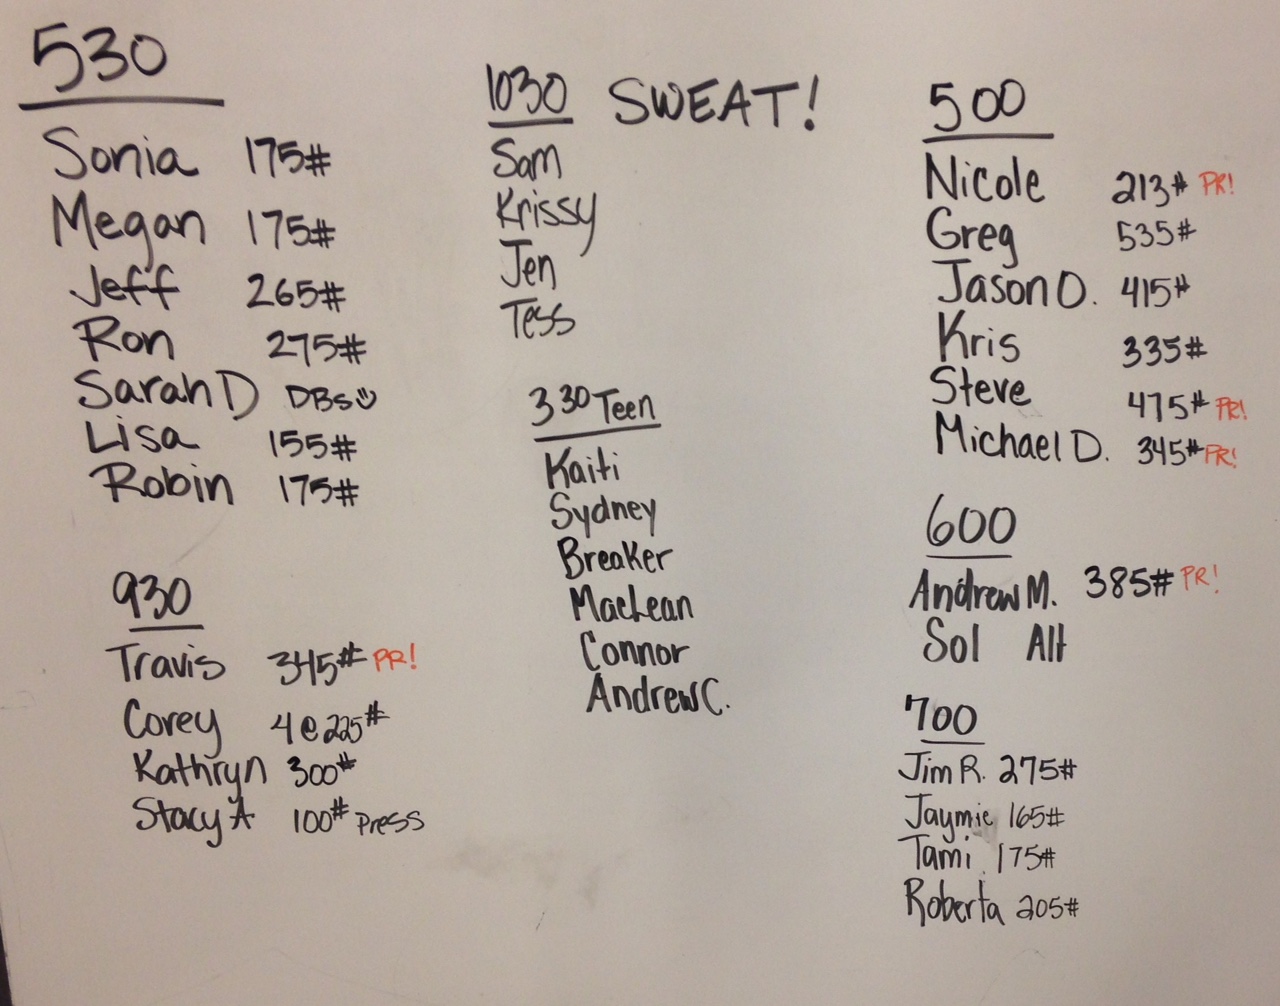 530
Sonia 175#
Megan 175#
Jeff 265#
Ron 275#
Sarah D DBs
Lisa 155#
Robin 175#
930
Travis 345# PR!
Corey 4@225#
Kathryn 300#
Stacy A 100# Press
1030 SWEAT!
Sam
Krissy
Jen
Tess
330 Teen
Kaiti
Sydney
Breaker
MacLean
Connor
Andrew C.
500
Nicole 213# PR!
Greg 535#
Jason O. 415#
Kris 335#
Steve 475# PR!
Michael D. 345# PR!
600
Andrew M. 385# PR!
Sol Alt
700
Jim R. 275#
Jaymie 165#
Tami 175#
Roberta 205#